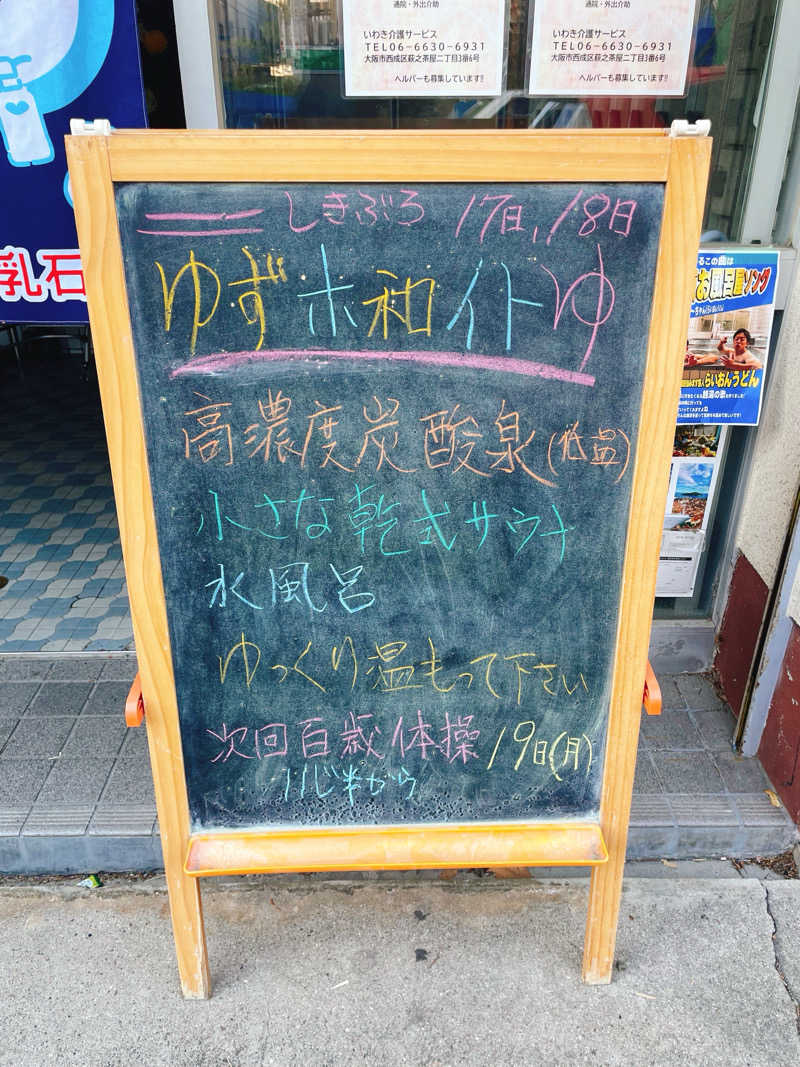 通院・外出介助
いわき介護サービス
TEL06-6630-6931
大阪市西成区萩之茶屋二丁目3番6号
ヘルパーも募集しています!!
通院・外出介助
いわき介護サービス
TEL06-6630-6931
大阪市西成区萩之茶屋二丁目3番6号
ヘルパーも募集しています!!
乳石
しきぶろ 17日、18日
ゆずホ和イトゆ
高濃度炭酸泉(低温)
小さな乾式サウナ
水風呂
ゆっくり温もって下さい
次回百歳体操 19日(月)
11じ半から
るこの曲は
お風呂屋ソング
らいおんうどん